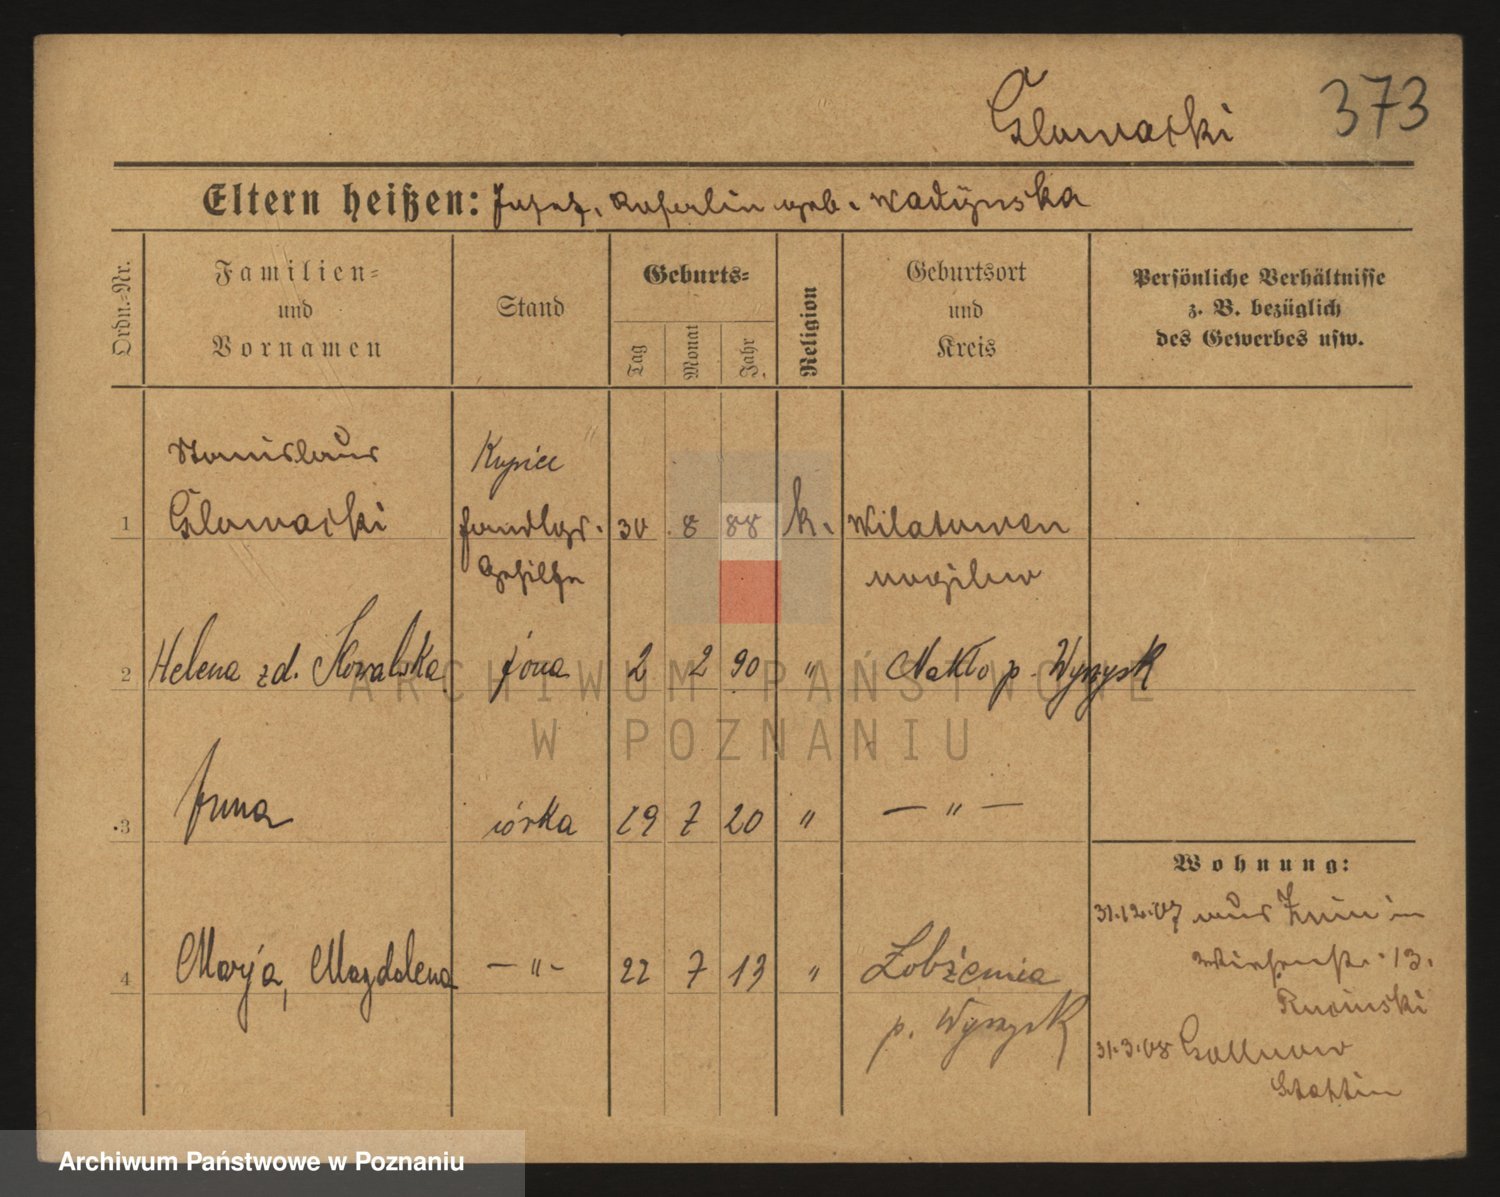 Glowacki 373
Eltern heißen: Josef, Kaserlin geb. Wadÿnska
Ordn.=Nr.
Familien=
und
Vornamen
Stand
Geburts=
Tag
Monat
Jahr
Religion
Geburtsort
und
Kreis
Persönliche Verhältnisse
z. B. bezüglich
des Gewerbes usw.
Stanislaus Kupiec
1 Glowacki Handlgs. 30 8 88 k. Wilatowen
Gehilfe Mogilno
2 Helena zd. Kowalska żona 2 2 90 " Nakło p. Wyrzysk
3 Anna córka 19 7 20 " — " —
4 Marja, Magdalena — " — 22 7 13 " Łobżenica
p. Wyrzysk
Wohnung:
31.12.07 aus Znin in
13.
Rucinski
31.3.08 Gollnow
Stettin
ARCHIWUM PAŃSTWOWE
W POZNANIU
Archiwum Państwowe w Poznaniu